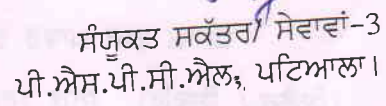 ਸੰਯੂਕਤ ਸਕੱਤਰ/ ਸੇਵਾਵਾਂ-3
ਪੀ.ਐਸ.ਪੀ.ਸੀ.ਐਲ; ਪਟਿਆਲਾ।